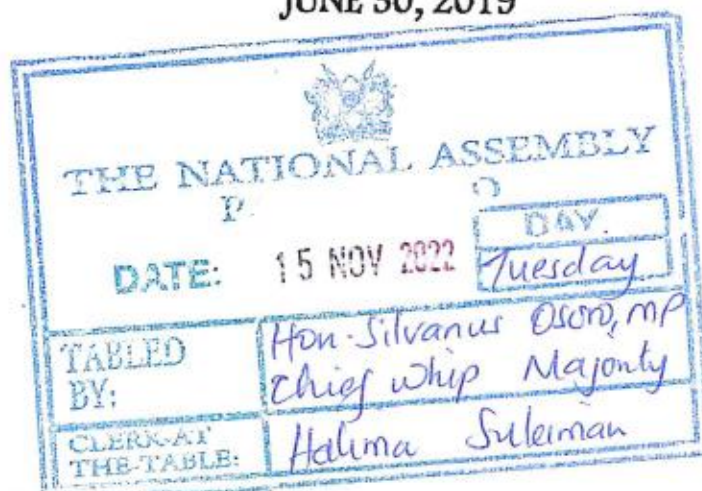 JUNE 30, 2019
THE NATIONAL ASSEMBLY
P
DATE: 15 NOV 2022
DAY.
Tuesday
TABLED BY:
Hon. Silvanus Osoro, MP
Chief Whip Majority
CLERK-AT THE-TABLE:
Halima Suleiman